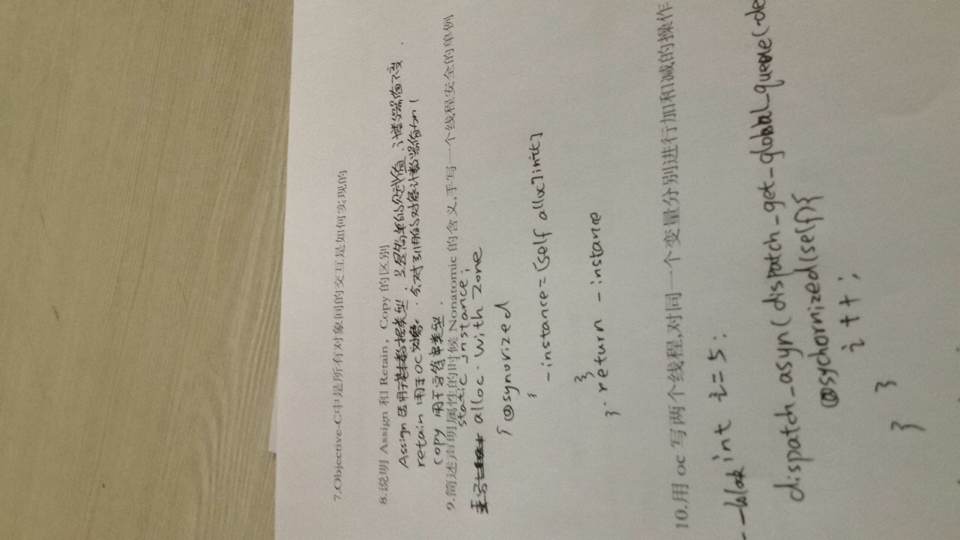 7.Objective-C中是所有对象间的交互是如何实现的
8.说明 Assign 和 Retain，Copy 的区别
Assign 适用于基本数据类型，是简单的赋值，计数器值不变.
retain 用于OC对象. 会对引用的对象计数器值加1
copy 用于字符串类型.
9.简述声明属性的时候 Nonatomic 的含义,手写一个线程安全的单例
static instance;
重写 alloc. with zone
{ @synorized
{
-instance=[self alloc]init]
}
}. return -instance
10.用 oc 写两个线程,对同一个变量分别进行加和减的操作
--blok int i=5:
dispatch_asyn(dispatch_get_global_queue(-de
@sychornized(self){
i++;
}
}